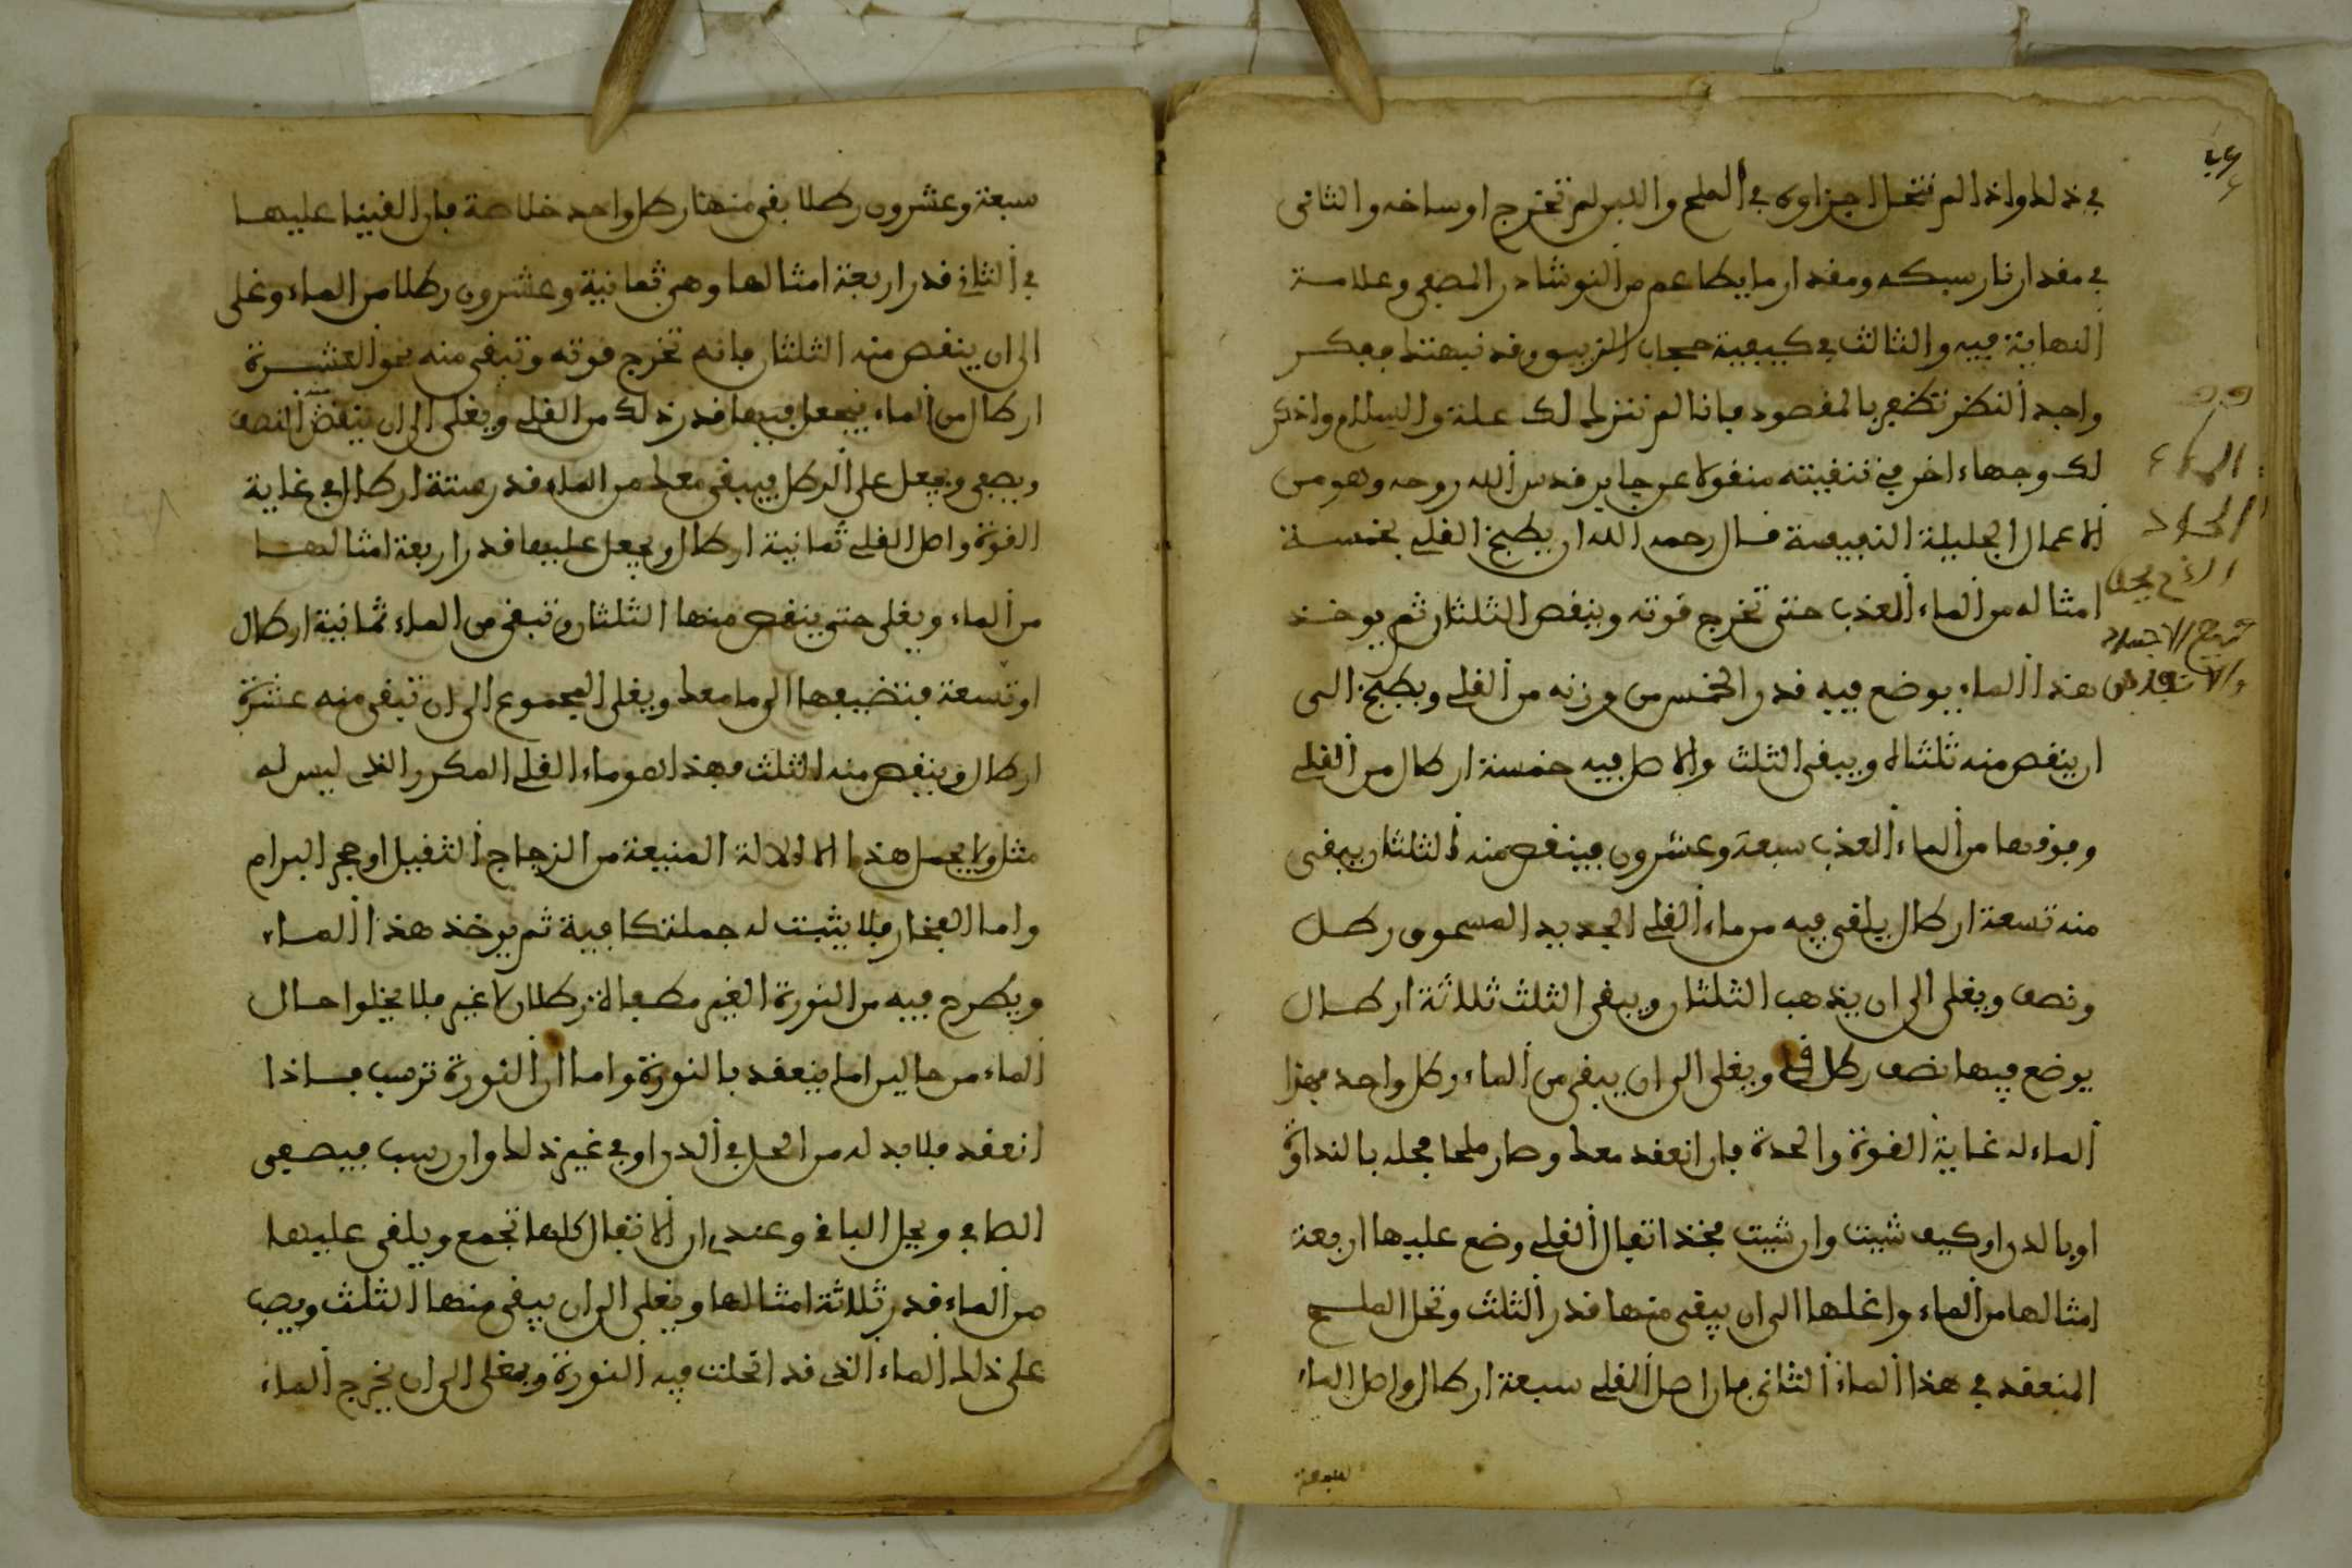 في ذلك واذا لم تنحل اجزاوه في الملح والدبر لم تخرج اوساخه والثاني
في مقدار نار سبكه ومقدار ما يطاعم من النوشادر المصفى وعلامة
النهاية فيه والثالث في كيفية حجاب وقد نبهتك ففكر
واجد النظر تظفر بالمقصود فانا لم نترك لك علة والسلام واذكر
لك وجها اخر في تنقيته منقولا عن جابر قدس الله روحه وهو من
الاعمال الجليلة النفيسة قال رحمه الله ان يطبخ القلي بخمسة
امثاله من الماء العذب حتى تخرج قوته وينقص الثلثان ثم يوخذ
هذا الماء يوضع فيه قدر الخمس من وزنه من القلي ويطبخ الى
ان ينقص منه ثلثاه ويبقى الثلث والاصل فيه خمسة ارطال من القلي
وفوقها من الماء العذب سبعة وعشرون فينقص منه الثلثان يبقى
منه تسعة ارطال يلقى فيه من ماء القلي الجديد المسحوق رطل
ونصف ويغلى الى ان يذهب الثلثان ويبقى الثلث ثلاثة ارطال
يوضع فيها نصف رطل قلي ويغلى الى ان يبقى من الماء رطل واحد فهذا
الماء له غاية القوة والحدة فان انعقد معك وصار ملحا فحله بالنداوة
او بالدن او كيف شيت وان شيت فخذ اثفال القلي وضع عليها اربعة
امثالها من الماء واغلها الى ان يبقى منها قدر الثلث وتحل الملح
المنعقد في هذا الماء الثاني فان اصل القلي سبعة ارطال واصل الماء
سبعة
سبعة وعشرون رطلا بقى منها رطل واحد خلاصة فان القينا عليها
في الثاني قدر اربعة امثالها وهي ثمانية وعشرون رطلا من الماء وغلى
الى ان ينقص منه الثلثان فانه تخرج قوته وتبقى منه نحو العشرة
ارطال من الماء فيجعل فيها قدر ذلك من القلي ويغلى الى ان ينقص منه النصف
ويصفى ويجعل على الرطل فيبقى معك من الماء قدر ستة ارطال في غاية
القوة واصل القلي ثمانية ارطال ويجعل عليها قدر اربعة امثالها
من الماء ويغلى حتى ينقص منها الثلثان وتبقى من الماء ثمانية ارطال
او تسعة فتضيفها الى ما معك ويغلى المجموع الى ان تبقى منه عشرة
ارطال وينقص منه الثلث فهذا هو ماء القلي المكرر الذي ليس له
مثل ولا يحمل هذا الا الالة المنيعة من الزجاج الثقيل او حجر البرام
واما الفخار فلا يثبت له جملة كافية ثم يوخذ هذا الماء
ويطرح فيه من النورة الغير مطفاة رطلان لا غير فلا يخلوا حال
الماء من حالين اما ينعقد بالنورة واما ان النورة ترسب فاذا
انعقد فلا بد له من الحل في الدن او في غير ذلك وان رسب فيصفى
الصافي ويحل الباقي وعندي ان الاثفال كلها تجمع ويلقى عليها
من الماء قدر ثلاثة امثالها ويغلى الى ان يبقى منها الثلث ويصب
على ذلك الماء الذي قد انحلت فيه النورة ويغلى الى ان يخرج الماء